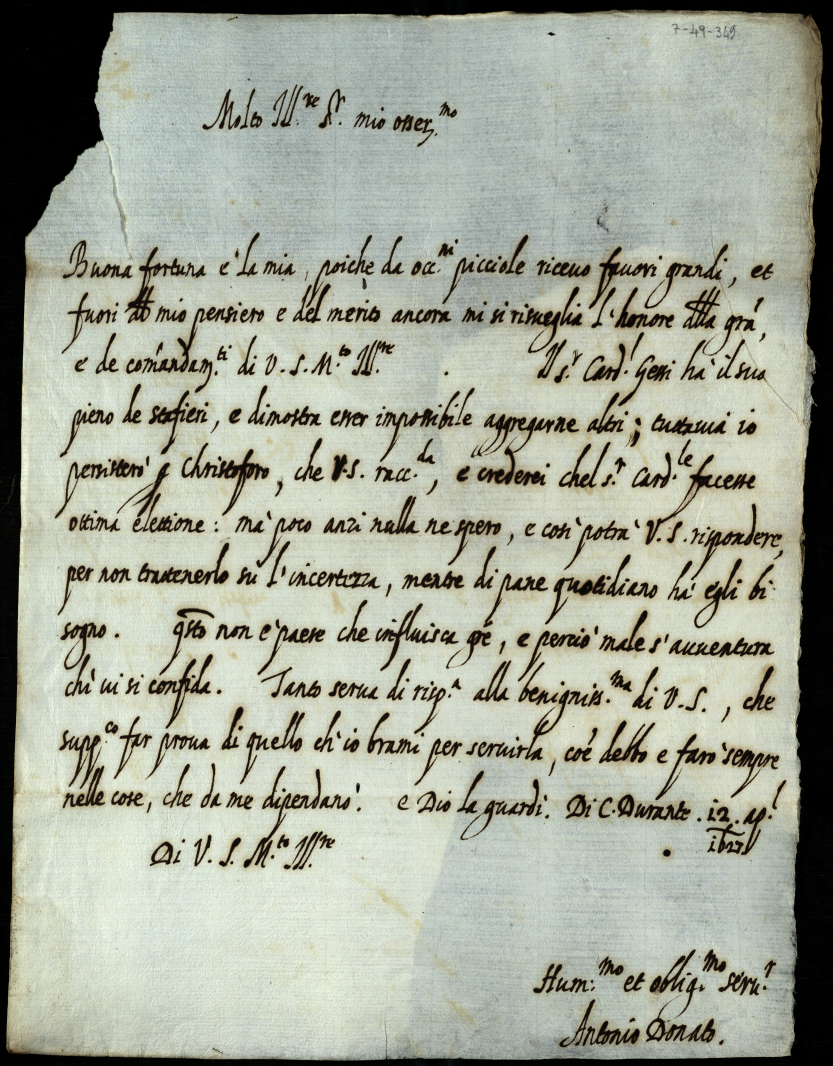 7-49-349
Molto Ill.re S.r mio osser.mo
Buona fortuna è la mia, poiche da occ.ni picciole riceuo fauori grandi, et
fuori del mio pensiero e del merito ancora mi si risueglia l'honore della grã,
e de comãndam.ti di V.S. M.to Ill.re. Il s.r Card.l Gessi hà il suo
pieno de stafieri, e dimostra esser impossibile aggregarne altri; tuttauia io
persisterò p Christoforo, che V.S. racc.da, e crederei chel s.r Card.le facesse
ottima elettione: mà poco anzi nulla ne spero, e così potrà V.S. rispondere,
per non trattenerlo sù l'incertezza, mentre di pane quotidiano hà egli bi
sogno. qsto non è paese che influisca gre, e perciò male s'auuentura
chi ui si confida. Tanto serua di risp.a alla benigniss.ma di V.S., che
supp.co far proua di quello ch'io brami per seruirla, coe debbo e farò sempre
nelle cose, che da me dipendano. e Dio la guardi. Di C. Durante. 12. ap.l
1627
Di V.S. M.to Ill.re
Hum.mo et oblig.mo seru.r
Antonio Donato.